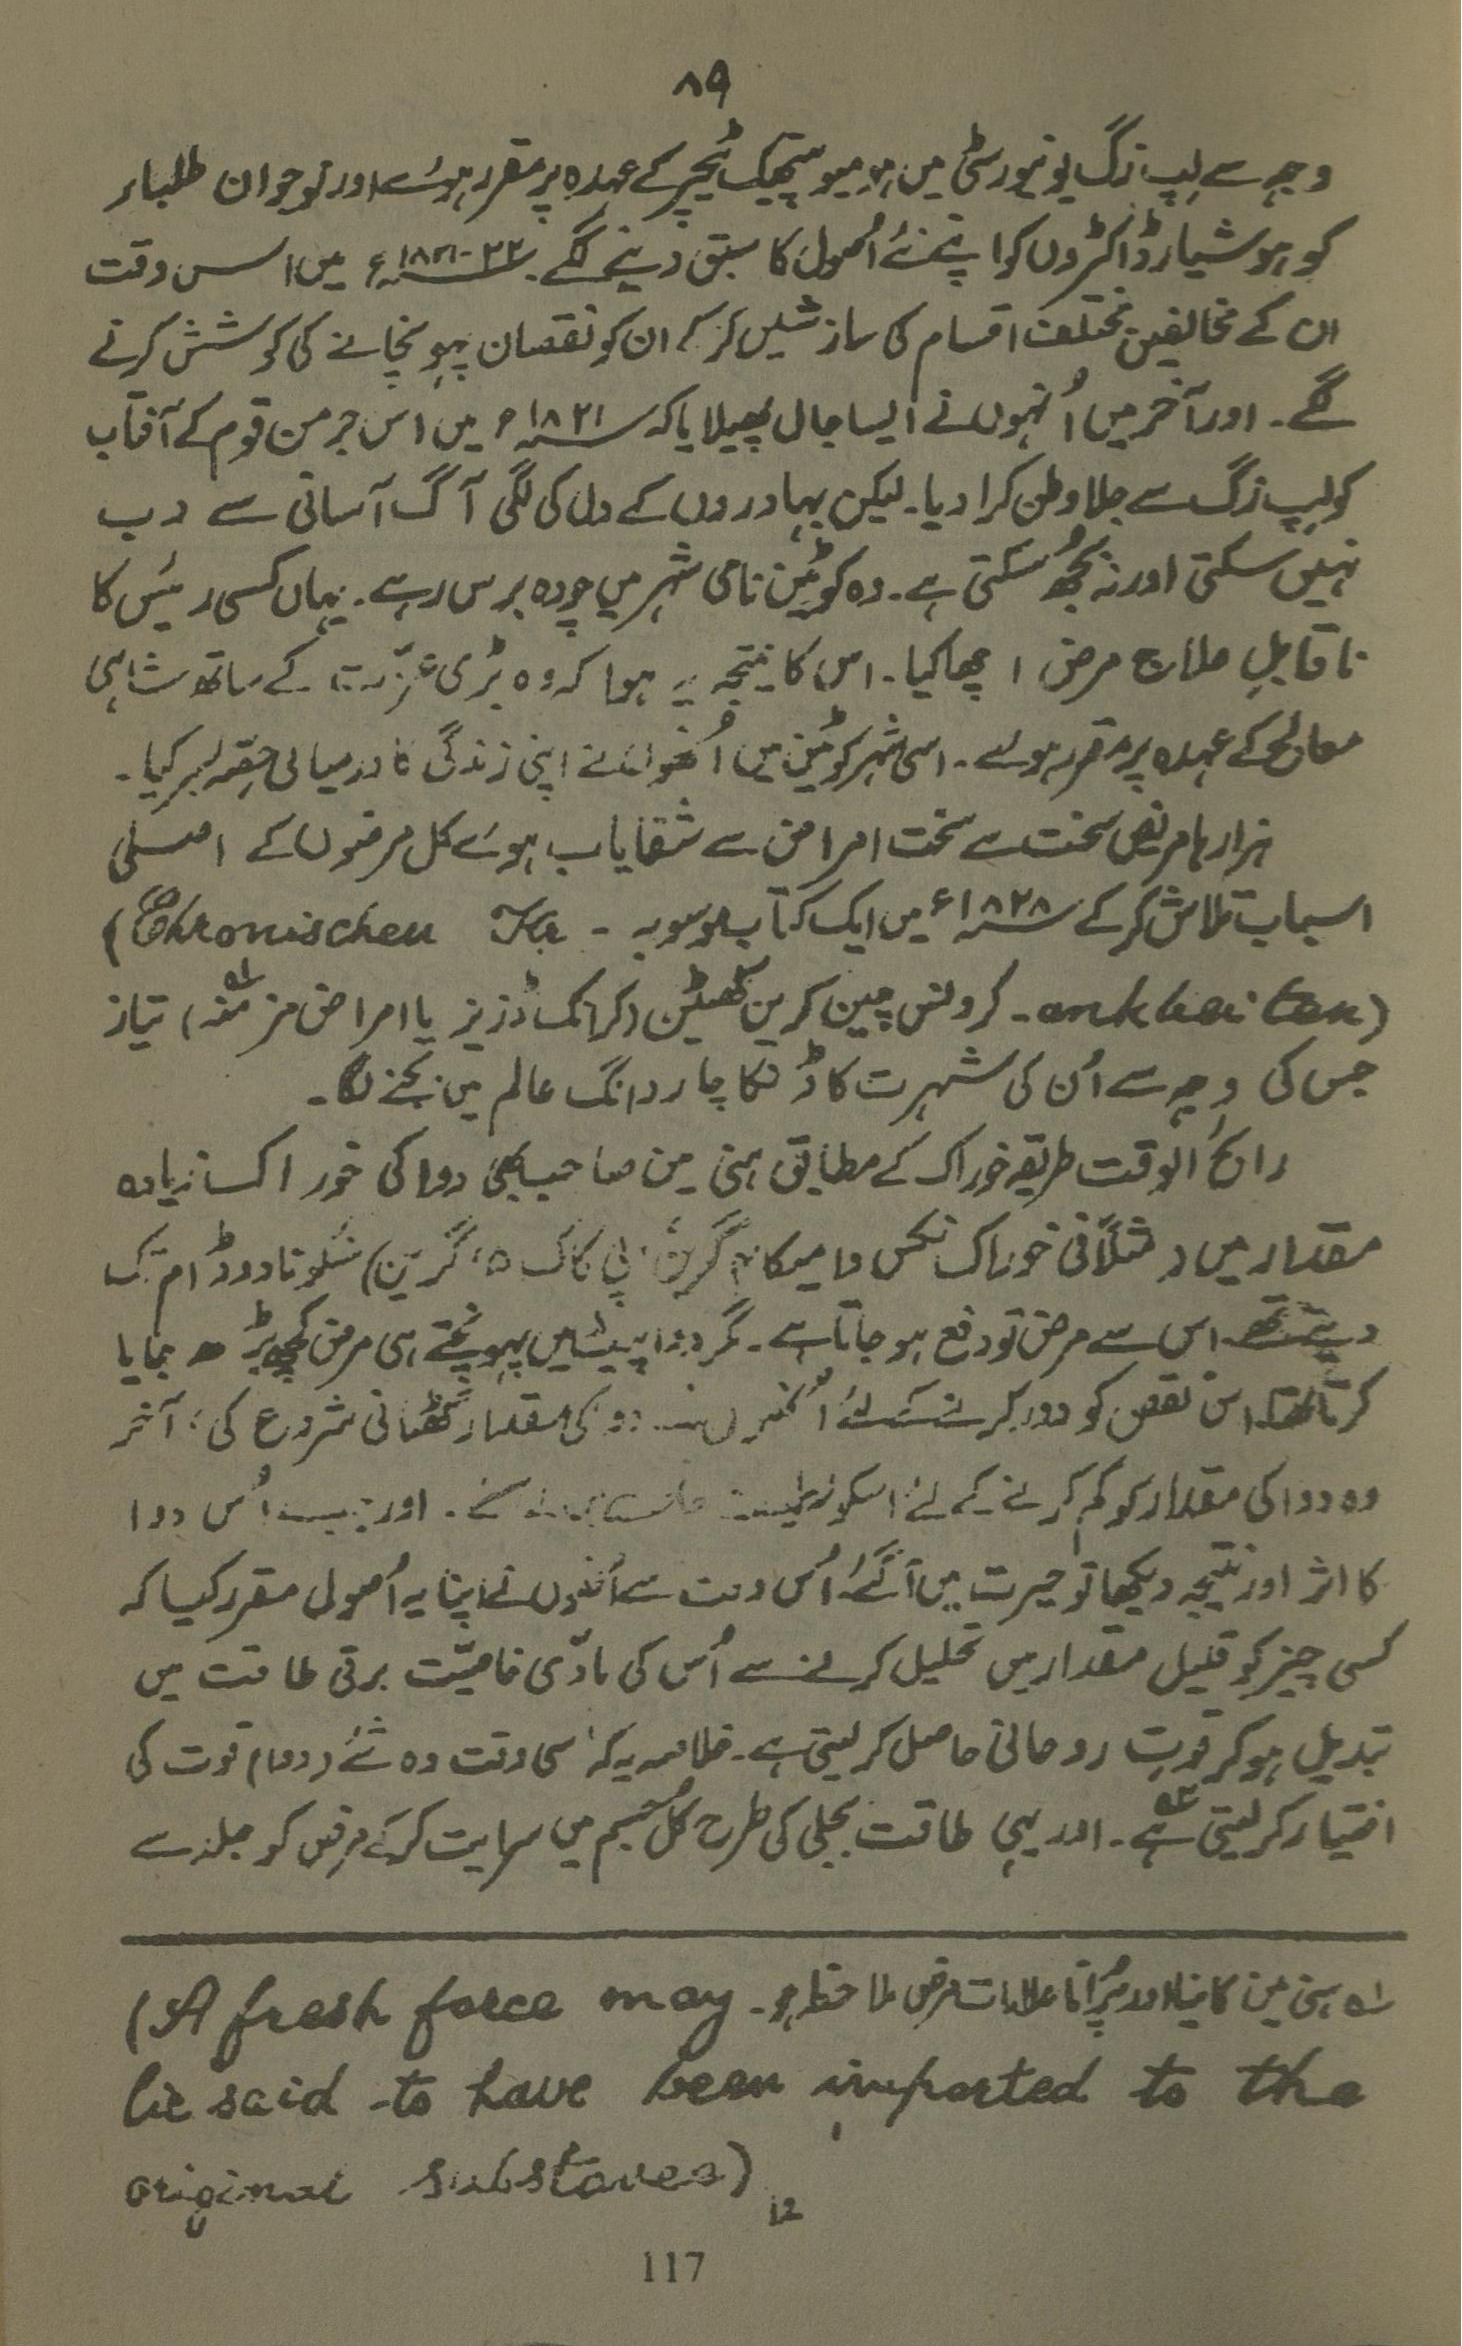 ۸۹
وجہ سے لیپ زگ یونیورسٹی میں ہومیوپیتھیک ٹیچر کے عہدہ پر مقرر ہوئے اور نوجوان طلباء
کو ہوشیار ڈاکٹروں کو اپنے نئے اُصول کا سبق دینے لگے۔ میں اس وقت
ان کے مخالفین مختلف اقسام کی سازشیں کر کے ان کو نقصان پہونچانے کی کوشش کرتے
لگے۔ اور آخر میں اُنہوں نے ایسا جال پھیلایا کہ سنہ ۱۸۲۱ء میں اس جرمن قوم کے آفتاب
کو لیپ زگ سے جلا وطن کرا دیا۔ لیکن بہادروں کے دل کی لگی آگ آسانی سے دب
نہیں سکتی اور نہ بُجھ سکتی ہے۔ وہ کوئٹین نامی شہر میں چودہ برس رہے۔ یہاں کسی رئیس کا
ناقابلِ علاج مرض اچھا کیا۔ اس کا نتیجہ یہ ہوا کہ وہ بڑی عزّت کے ساتھ شاہی
معالج کے عہدہ پر مقرر ہوئے۔ اسی شہر کوئٹین میں اُنھوں نے اپنی زندگی کا درمیانی حصّہ بسر کیا۔
ہزارہا مریض سخت سے سخت امراض سے شفایاب ہوئے کل مرضوں کے اصلی
اسباب تلاش کر کے سنہ ۱۸۲۸ء میں ایک کتاب موسوبہ - (Chronischen Kr
ankheiten) - کرونس چین کرین کھیٹن (کرانک ڈزیز یا امراض مزمنہ) ۱ه تیار
جس کی وجہ سے اُن کی شہرت کا ڈنکا چار دانگ عالم میں بجنے لگا۔
رائج الوقت طریقہ خوراک کے مطابق ہنی مین صاحب بھی دوا کی خوراک زیادہ
مقدار میں (مثلاً فی خوراک نکس وامیکا گرین، اپی کاک ۵ گرین) سنکونا دو ڈرام تک
دیتے تھے۔ اس سے مرض تو دفع ہو جاتا ہے۔ مگر دوا پیٹ میں پہونچتے ہی مرض کچھ بڑھ جایا
کرتا تھا۔ اس نقص کو دور کرنے کے لئے اُنھوں نے دوا کی مقدار گھٹانی شروع کی؛ آخر
وہ دوا کی مقدار کو کم کرنے کے لئے اسکو لگے۔ اور جب اُس دوا
کا اثر اور نتیجہ دیکھا تو حیرت میں آگئے۔ اُس وقت سے اُنہوں نے اپنا یہ اُصول مقرر کیا کہ
کسی چیز کو قلیل مقدار میں تحلیل کرنے سے اُس کی مادّی خاصیّت برقی طاقت میں
تبدیل ہو کر قوت روحانی حاصل کر لیتی ہے۔ خلاصہ یہ کہ اسی وقت وہ شئے (دوا) قوت کی
اختیار کر لیتی ہے۔ ۲ه اور یہی طاقت بجلی کی طرح کُل جسم میں سرایت کر کے مرض کو جلد سے
۱ه ہنی مین کا نیا اور پُرانا علامات مرض ملاحظہ ہو۔ (A fresh force may
be said to have been imparted to the
original substance) 12
117